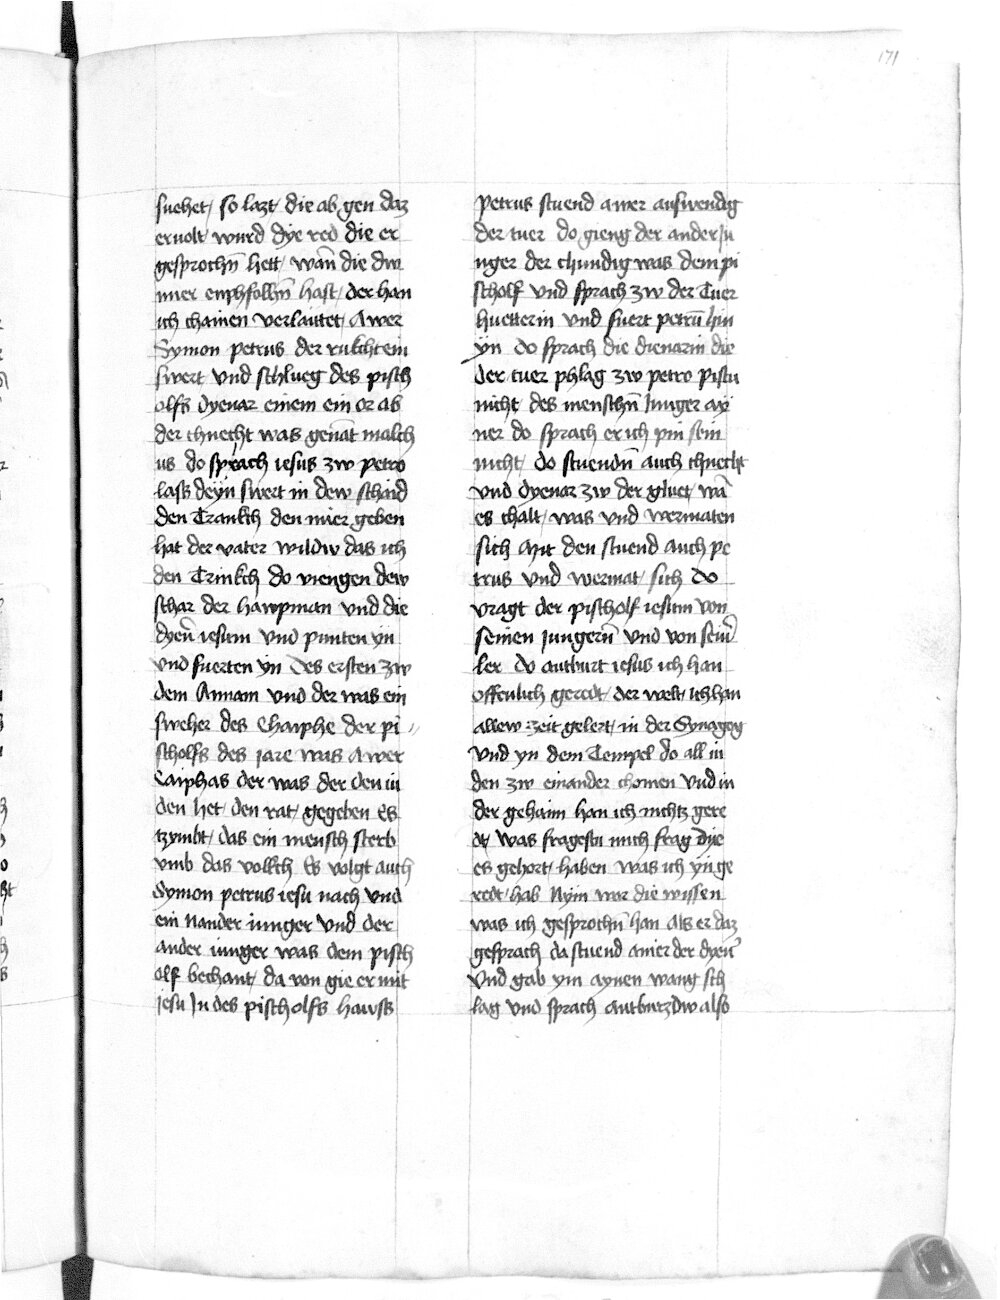 171
suehet / so lazt / die ab gen daz
ervolt / wurd dye red die er
gesprochn̄ hett / wān die dw
mier enphfolhn̄ hast / der han
ich chainen verlaittet / Awer
Symon petrus der rukcht ein
swert und schlueg des pisch
olfs dyenar einem ein or ab
der chnecht was genāt malch
us do sprach iesus zw petro
lass deyn swert in dew schaid
den Trankch den mier geben
hat der vater wildw das ich
den Trinkch do viengen dew
schar der hawpman vnd die
dyen̄ iesum vnd punten yn
vnd fuerten yn des ersten zw
dem Annam vnd der was ein
sweher des Chaiphe der pi
scholfs des jare was Awer
Caiphas der was der den iu
den het / den rat / gegeben Es
tzymbt / das ein mensch sterb
vmb das volkch Es volgt auch
Symon petrus iesu nach vnd
ein nander iunger vnd der
ander iunger was dem pisch
olf bechant / da von gie er mit
iesu In des pischolfs hawss
petrus stuend awer auswendig
der tuer do gieng der ander iu
nger der chundig was dem pi
scholf vnd sprach zw der Tuer
huetterin vnd fuert petrū hin
yn do sprach die dienarin die
der tuer phlag zw petro pistu
nicht des menschn̄ Junger ay
ner do sprach er ich pin sein
nicht / do stuendn̄ auch chnecht
vnd dyenar zw der gluet / wā
es chalt / was vnd wermaten
sich Mit den stuend auch pe
trus vnd wermat / sich do
vragt der pischolf iesum von
seinen Jungern̄ vnd von seiner
ler do antburt iesus ich han
offenlich geredt / der welt / ich han
allew zeit gelert / in der Synagog
vnd yn dem Tempel do all iu
den zw einander chomen vnd in
der gehaim han ich nichtz gere
dt was fragestu mich frag dye
es gehort / haben was ich yn ge
redt / hab Nym war die wissen
was ich gesprochn̄ han als er daz
gesprach da stuend ainer der dyen̄
vnd gab ym aynen wang sch
lag vnd sprach antburtz dw also